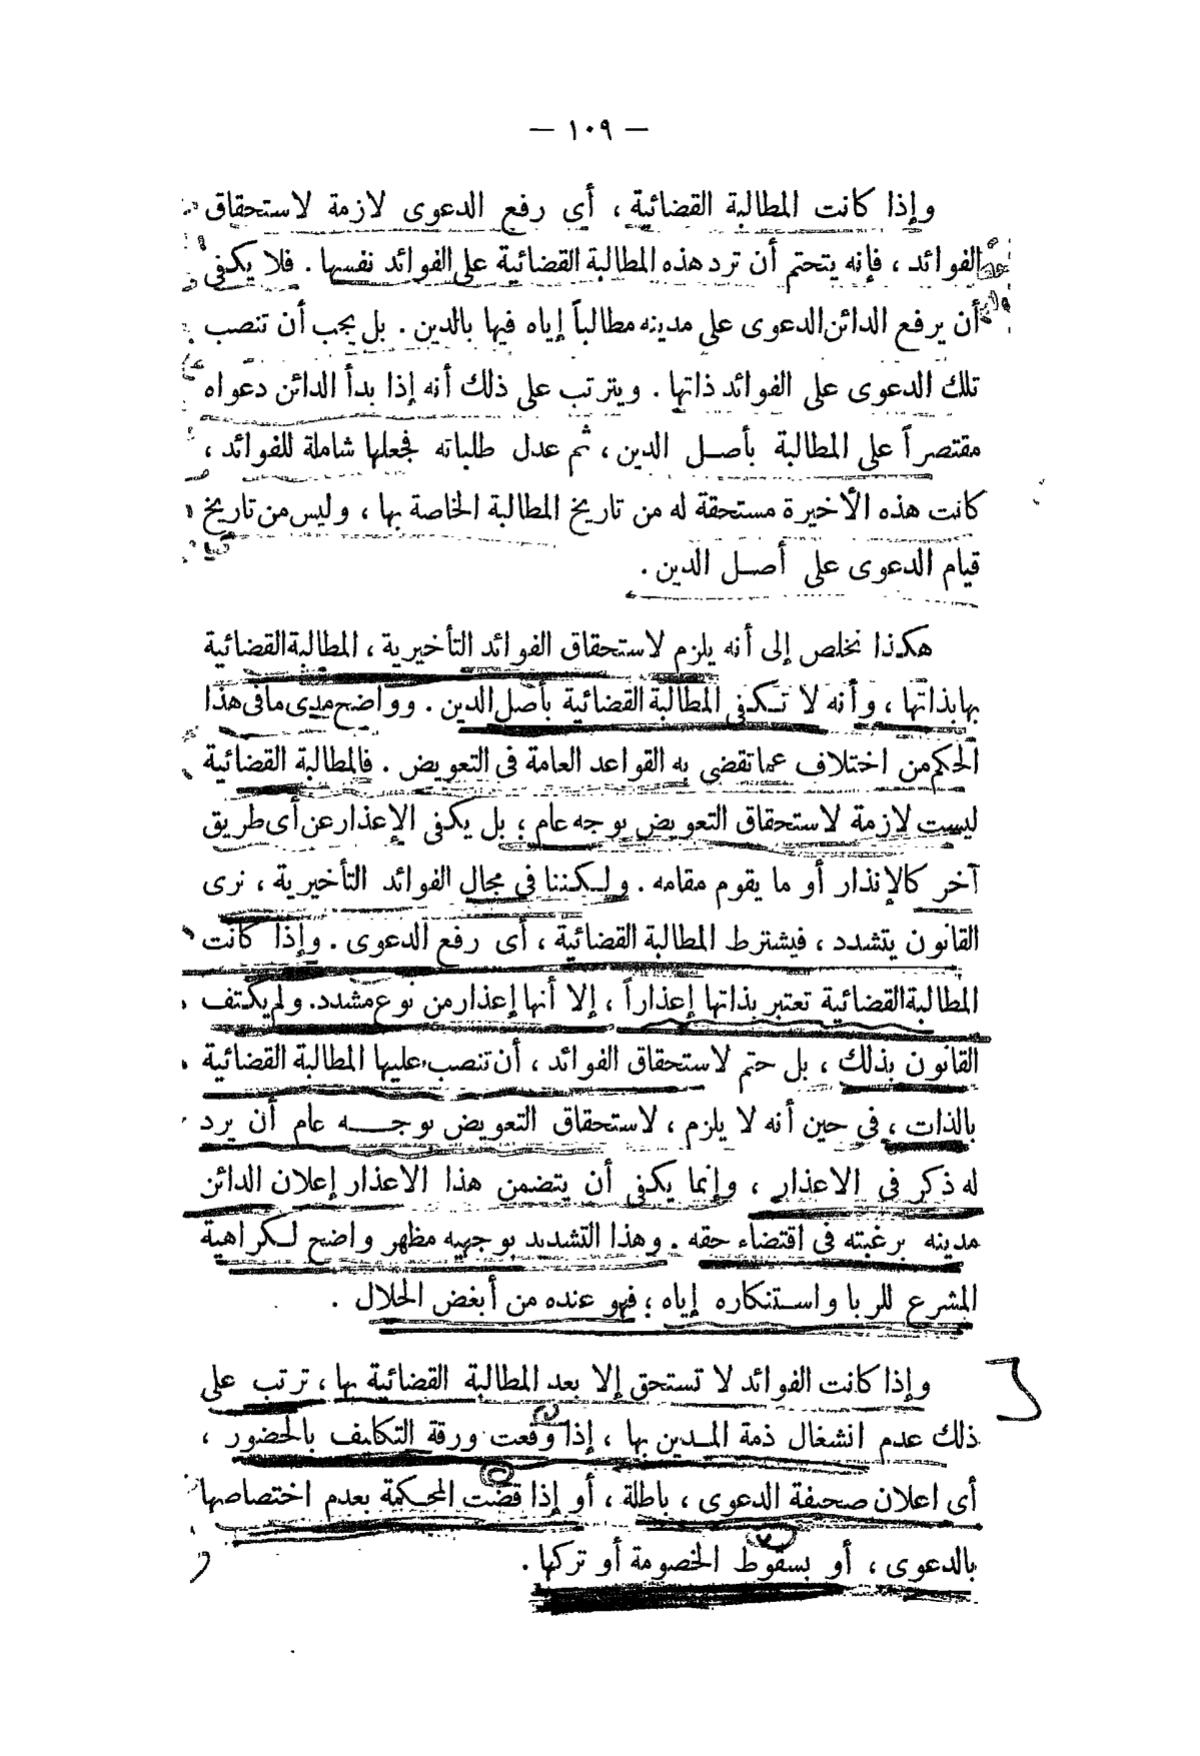 — ١٠٩ —
وإذا كانت المطالبة القضائية ، أى رفع الدعوى لازمة لاستحقاق
الفوائد ، فإنه يتحتم أن ترد هذه المطالبة القضائية على الفوائد نفسها . فلا يكفى
أن يرفع الدائن الدعوى على مدينه مطالباً إياه فيها بالدين . بل يجب أن تنصب
تلك الدعوى على الفوائد ذاتها . ويترتب على ذلك أنه إذا بدأ الدائن دعواه
مقتصراً على المطالبة بأصل الدين ، ثم عدل طلباته فجعلها شاملة للفوائد ،
كانت هذه الأخيرة مستحقة له من تاريخ المطالبة الخاصة بها ، وليس من تاريخ
قيام الدعوى على أصل الدين .
هكذا نخلص إلى أنه يلزم لاستحقاق الفوائد التأخيرية ، المطالبة القضائية
بها بذاتها ، وأنه لا تكفى المطالبة القضائية بأصل الدين . وواضح مدى ما فى هذا
الحكم من اختلاف عما تقضى به القواعد العامة فى التعويض . فالمطالبة القضائية
ليست لازمة لاستحقاق التعويض بوجه عام ؛ بل يكفى الإعذار عن أى طريق
آخر كالإنذار أو ما يقوم مقامه . ولكننا فى مجال الفوائد التأخيرية ، نرى
القانون يتشدد ، فيشترط المطالبة القضائية ، أى رفع الدعوى . وإذا كانت
المطالبة القضائية تعتبر بذاتها إعذاراً ، إلا أنها إعذار من نوع مشدد . ولم يكتف
القانون بذلك ، بل حتم لاستحقاق الفوائد ، أن تنصب عليها المطالبة القضائية
بالذات ، فى حين أنه لا يلزم ، لاستحقاق التعويض بوجه عام أن يرد
له ذكر فى الاعذار ، وإنما يكفى أن يتضمن هذا الاعذار إعلان الدائن
مدينه برغبته فى اقتضاء حقه . وهذا التشديد بوجهيه مظهر واضح لكراهية
المشرع للربا واستنكاره إياه ؛ فهو عنده من أبغض الحلال .
وإذا كانت الفوائد لا تستحق إلا بعد المطالبة القضائية بها ، ترتب على
ذلك عدم انشغال ذمة المدين بها ، إذا وقعت ورقة التكليف بالحضور ،
أى اعلان صحيفة الدعوى ، باطلة ، أو إذا قضت المحكمة بعدم اختصاصها
بالدعوى ، أو بسقوط الخصومة أو تركها .